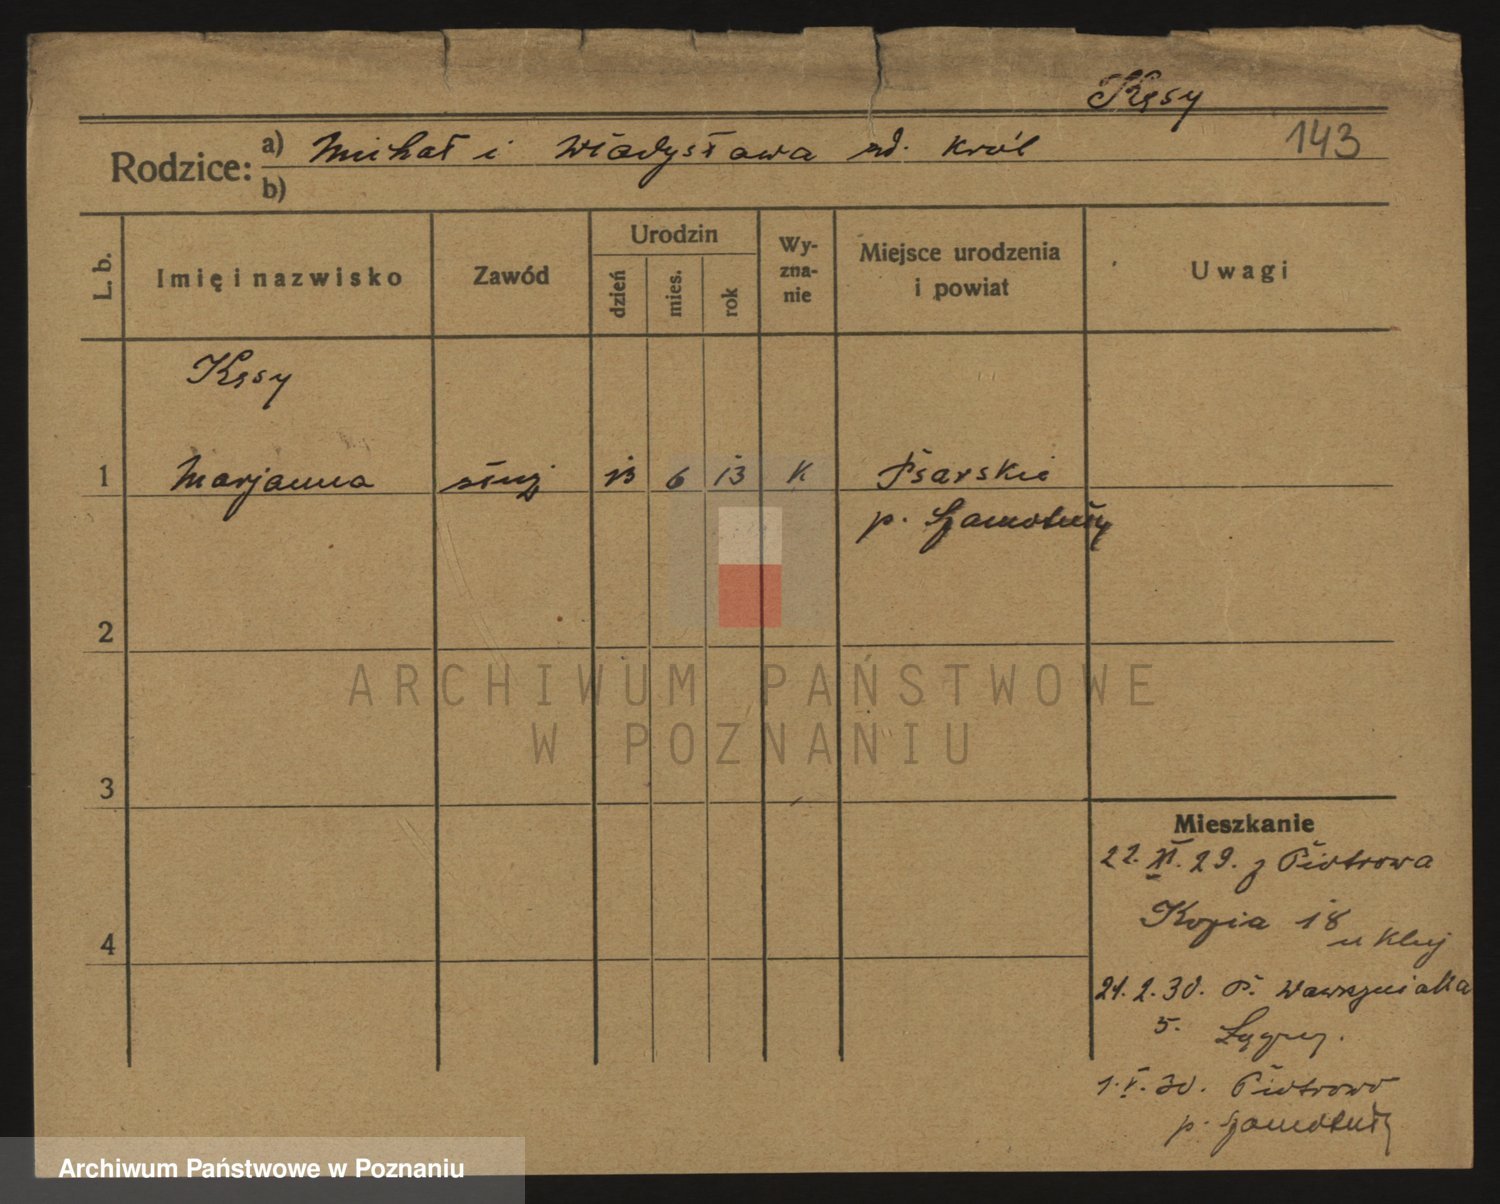 Kęsy
143
Rodzice: a) Michał i Władysława zd. Król
b)
L. b.
Imię i nazwisko
Zawód
Urodzin
dzień
mies.
rok
Wy-
zna-
nie
Miejsce urodzenia
i powiat
Uwagi
Kęsy
1 Marjanna służ 13 6 13 K Psarskie
p. Szamotuły
2
3
4
ARCHIWUM PAŃSTWOWE
W POZNANIU
Mieszkanie
22. XI. 29. z Piotrowa
Kopia 18
u Kluj
21. 2. 30. P. Wawrzyniaka
5.
1. V. 30. Piotrowo
p. Szamotuły
Archiwum Państwowe w Poznaniu